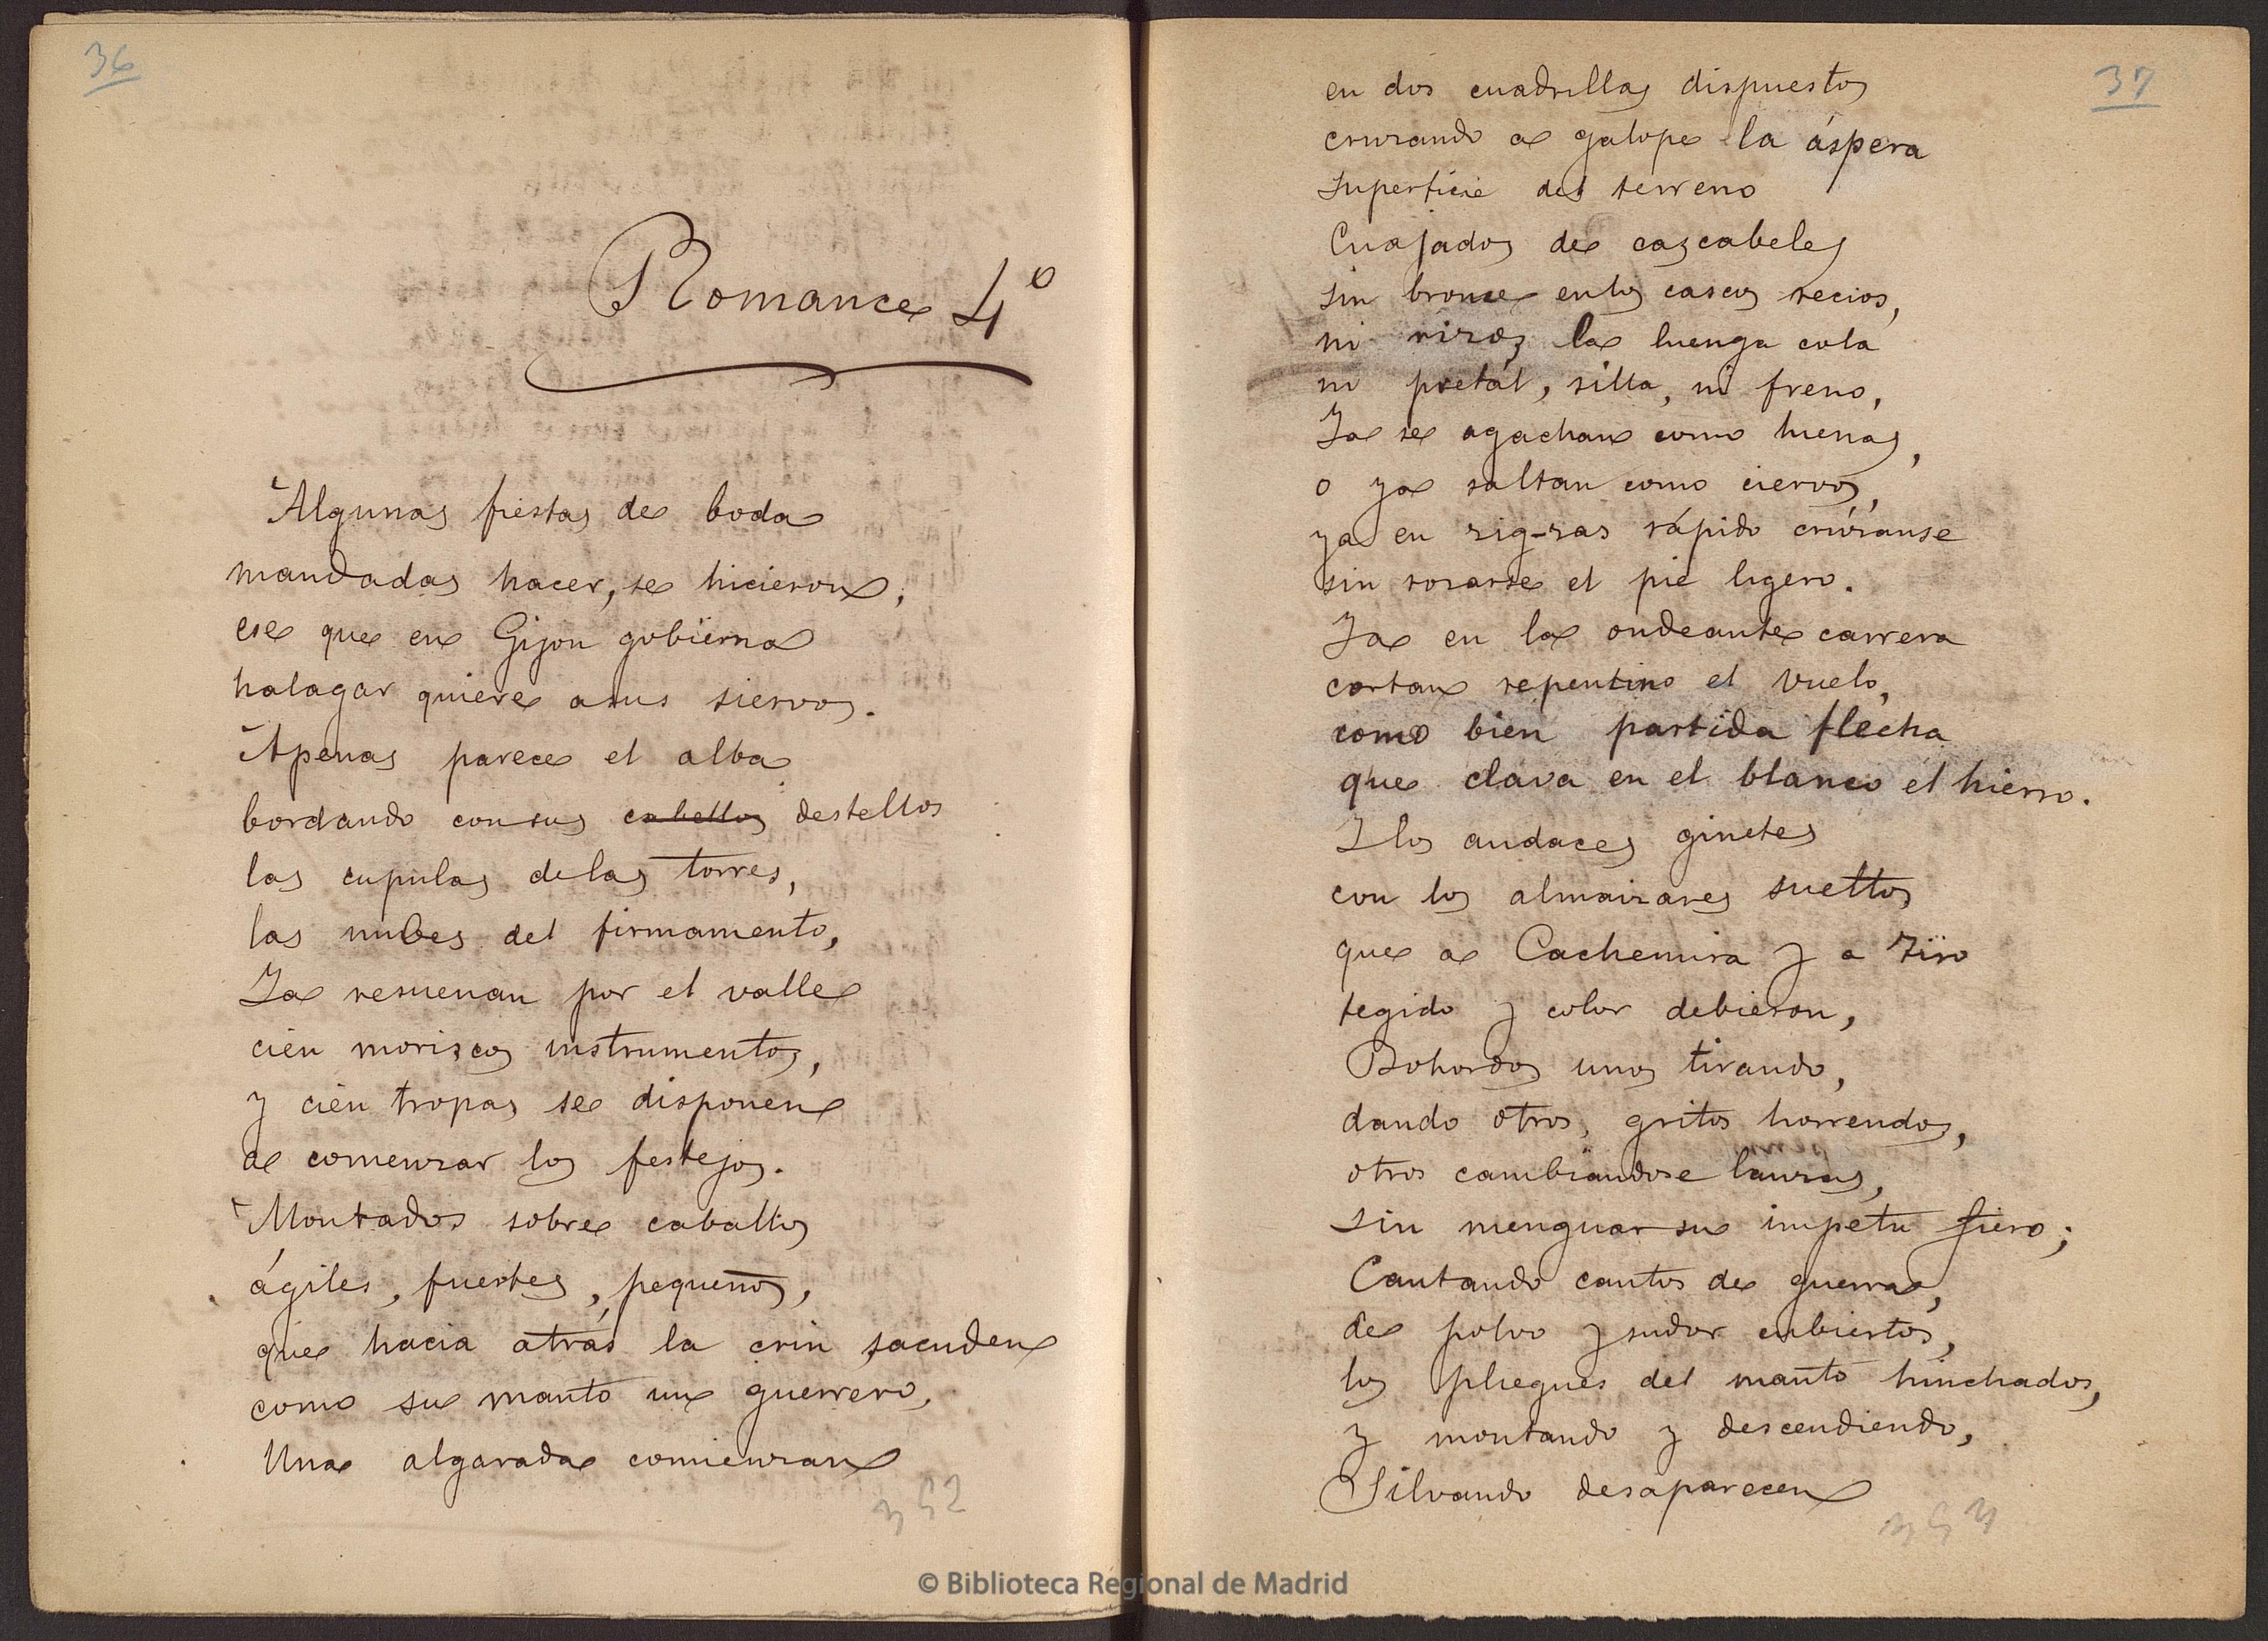 36
Romance 4º
Algunas fiestas de boda
mandadas hacer, se hicieron,
ese que en Gijon gobierna
halagar quiere asus siervos.
Apenas parece el alba
bordando con sus cabellos destellos
las cupulas delas torres,
las nubes del firmamento,
Ya resuenan por el valle
cien moriscos instrumentos,
y cien tropas se disponen
a comenzar los festejos.
Montados sobre caballos
ágiles, fuertes, pequeños,
que hacia atrás la crin sacuden
como su manto un guerrero,
Una algarada comienzan
352
37
en dos cuadrillas dispuestos
cruzando a galope la áspera
superficie del terreno
Cuajados de cascabeles
sin bronce enlos cascos recios,
ni rizos la luenga cola
ni pretál, silla, ni freno,
Ya se agachan como hienas,
o ya saltan como ciervos,
ya en zig-zas rápido crúzanse
sin rozarse el pie ligero.
Ya en la ondeante carrera
cortan repentino el vuelo,
como bien partida flecha
que clava en el blanco el hierro.
Y los audaces ginetes
con los almaizares sueltos
que a Cachemira y a Tiro
tegido y color debieron,
Bohordos unos tirando,
dando otros, gritos horrendos,
otros cambiandose lanzas,
sin menguar su impetu fiero;
Cantando cantos de guerra,
de polvo y sudor cubiertos,
los pliegues del manto hinchados,
y montando y descendiendo,
Silvando desaparecen
353
© Biblioteca Regional de Madrid